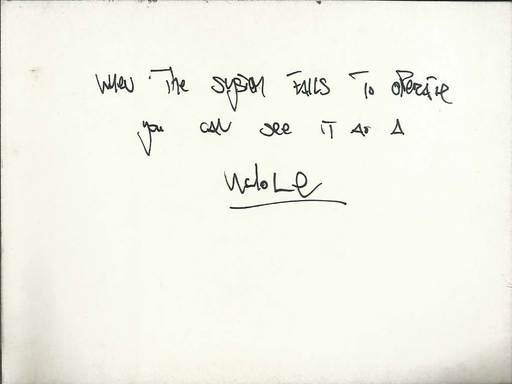 When The system FAILS To operate
you can see IT as A
WhoLe